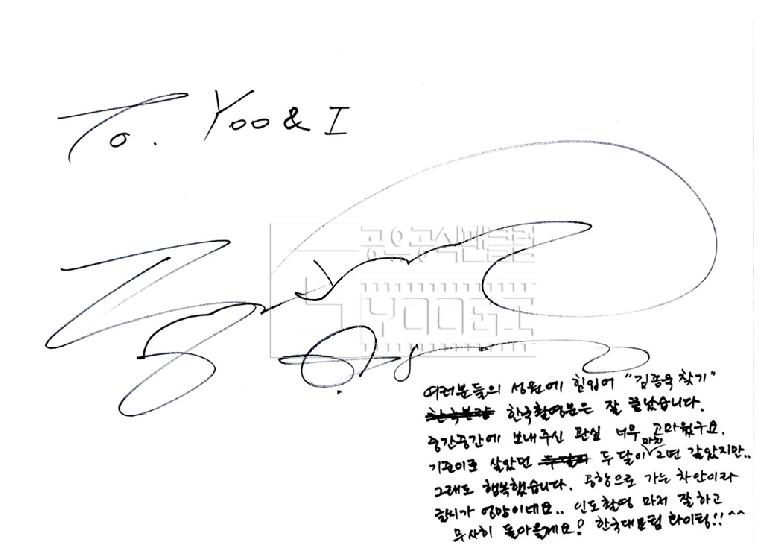 To. Yoo & I
공유공식팬클럽
YOO&I
여러분들의 성원에 힘입어 "김종욱 찾기"
한국분량 한국촬영분은 잘 끝났습니다.
중간중간에 보내주신 관심 너무 고마웠구요.
기준이로 살았던 두 달이 마치 2년 같았지만..
그래도 행복했습니다. 공항으로 가는 차안이라
글씨가 엉망이네요.. 인도촬영 마저 잘하고
무사히 돌아올께요! 한국대표팀 화이팅!! ^^